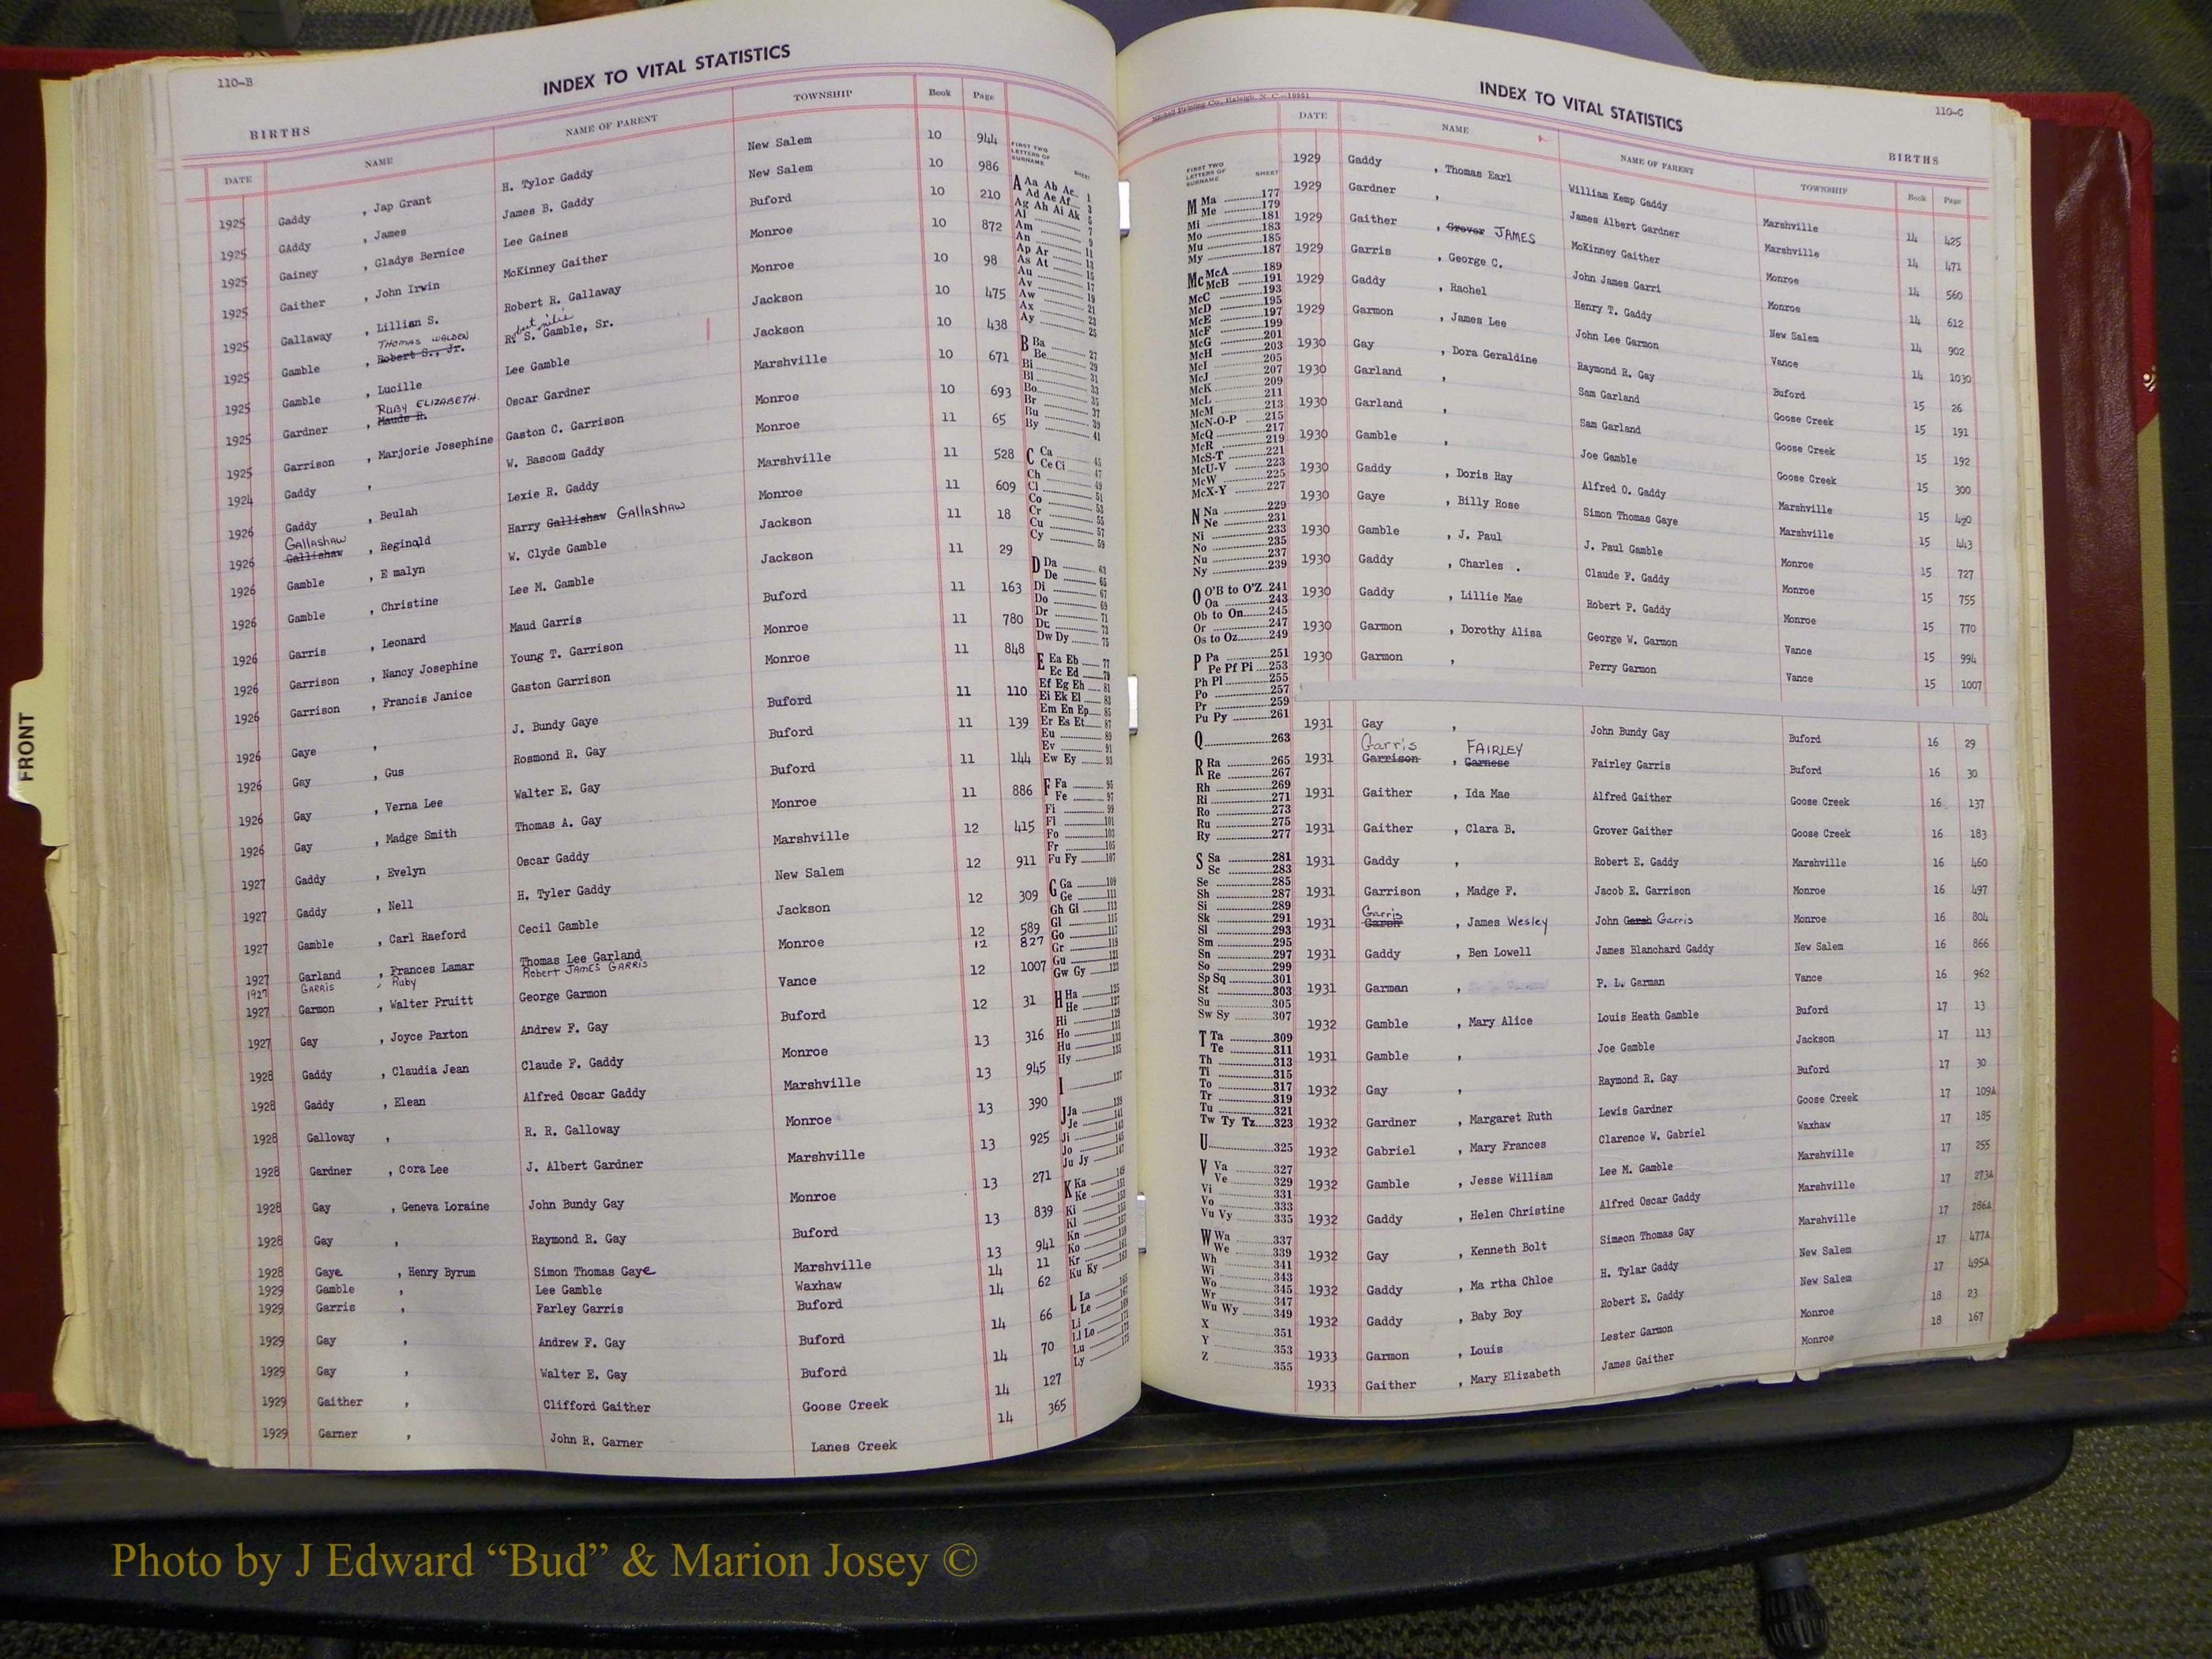 110-B
INDEX TO VITAL STATISTICS
BIRTHS
DATE NAME NAME OF PARENT TOWNSHIP Book Page
1925 Gaddy , Jap Grant H. Tylor Gaddy New Salem 10 944
1925 GAddy , James James B. Gaddy New Salem 10 986
1925 Gainey , Gladys Bernice Lee Gaines Buford 10 210
1925 Gaither , John Irwin McKinney Gaither Monroe 10 872
1925 Gallaway , Lillian S. Robert R. Gallaway Monroe 10 98
THOMAS WALDEN
1925 Gamble , Robert S., Jr. R. S. Gamble, Sr. Jackson 10 475
1925 Gamble , Lucille Lee Gamble Jackson 10 438
RUBY ELIZABETH
1925 Gardner , Maude R. Oscar Gardner Marshville 10 671
1925 Garrison , Marjorie Josephine Gaston C. Garrison Monroe 10 693
1924 Gaddy , W. Bascom Gaddy Monroe 11 65
1926 Gaddy , Beulah Lexie R. Gaddy Marshville 11 528
GAllAshAw
1926 Gallishaw , Reginald Harry Gallishaw GAllAshAw Monroe 11 609
1926 Gamble , E malyn W. Clyde Gamble Jackson 11 18
1926 Gamble , Christine Lee M. Gamble Jackson 11 29
1926 Garris , Leonard Maud Garris Buford 11 163
1926 Garrison , Nancy Josephine Young T. Garrison Monroe 11 780
1926 Garrison , Francis Janice Gaston Garrison Monroe 11 848
1926 Gaye , J. Bundy Gaye Buford 11 110
1926 Gay , Gus Rosmond R. Gay Buford 11 139
1926 Gay , Verna Lee Walter E. Gay Buford 11 144
1926 Gay , Madge Smith Thomas A. Gay Monroe 11 886
1927 Gaddy , Evelyn Oscar Gaddy Marshville 12 415
1927 Gaddy , Nell H. Tyler Gaddy New Salem 12 911
1927 Gamble , Carl Raeford Cecil Gamble Jackson 12 309
1927 Garland , Frances Lamar Thomas Lee Garland Monroe 12 589
1927 GARRIS , Ruby Robert JAMES GARRIS 12 827
1927 Garmon , Walter Pruitt George Garmon Vance 12 1007
1927 Gay , Joyce Paxton Andrew F. Gay Buford 12 31
1928 Gaddy , Claudia Jean Claude F. Gaddy Monroe 13 316
1928 Gaddy , Elean Alfred Oscar Gaddy Marshville 13 945
1928 Galloway , R. R. Galloway Monroe 13 390
1928 Gardner , Cora Lee J. Albert Gardner Marshville 13 925
1928 Gay , Geneva Loraine John Bundy Gay Monroe 13 271
1928 Gay , Raymond R. Gay Buford 13 839
1928 Gaye , Henry Byrum Simon Thomas Gaye Marshville 13 941
1929 Gamble , Lee Gamble Waxhaw 14 11
1929 Garris , Farley Garris Buford 14 62
1929 Gay , Andrew F. Gay Buford 14 66
1929 Gay , Walter E. Gay Buford 14 70
1929 Gaither , Clifford Gaither Goose Creek 14 127
1929 Garner , John R. Garner Lanes Creek 14 365
FIRST TWO LETTERS OF SURNAME SHEET
A Aa Ab Ac 1
Ad Ae Af 3
Ag Ah Ai Ak 5
Al 7
Am 9
An 11
Ap Ar 13
As At 15
Au 17
Av 19
Aw 21
Ax 23
Ay 25
B Ba 27
Be 29
Bi 31
Bl 33
Bo 35
Br 37
Bu 39
By 41
C Ca 45
Ce Ci 47
Ch 49
Cl 51
Co 53
Cr 55
Cu 57
Cy 59
D Da 63
De 65
Di 67
Do 69
Dr 71
Du 73
Dw Dy 75
E Ea Eb 77
Ec Ed 79
Ef Eg Eh 81
Ei Ek El 83
Em En Ep 85
Er Es Et 87
Eu 89
Ev 91
Ew Ey 93
F Fa 95
Fe 97
Fi 99
Fl 101
Fo 103
Fr 105
Fu Fy 107
G Ga 109
Ge 111
Gh Gi 113
Gl 115
Go 117
Gr 119
Gu 121
Gw Gy 123
H Ha 125
He 127
Hi 129
Ho 131
Hu 133
Hy 135
I 137
J Ja 139
Je 141
Ji 143
Jo 145
Ju Jy 147
K Ka 149
Ke 151
Ki 153
Kl 155
Kn 157
Ko 159
Kr 161
Ku Ky 163
L La 165
Le 167
Li 169
Ll Lo 171
Lu 173
Ly 175
Mitchell Printing Co., Raleigh, N. C.—10951
INDEX TO VITAL STATISTICS
110-C
BIRTHS
DATE NAME NAME OF PARENT TOWNSHIP Book Page
FIRST TWO LETTERS OF SURNAME SHEET
M Ma 177
Me 179
Mi 181
Mo 183
Mu 185
My 187
Mc McA 189
McB 191
McC 193
McD 195
McE 197
McF 199
McG 201
McH 203
McI 205
McJ 207
McK 209
McL 211
McM 213
McN-O-P 215
McQ 217
McR 219
McS-T 221
McU-V 223
McW 225
McX-Y 227
N Na 229
Ne 231
Ni 233
No 235
Nu 237
Ny 239
O O'B to O'Z 241
Oa 243
Ob to On 245
Or 247
Os to Oz 249
P Pa 251
Pe Pf Pi 253
Ph Pl 255
Po 257
Pr 259
Pu Py 261
Q 263
R Ra 265
Re 267
Rh 269
Ri 271
Ro 273
Ru 275
Ry 277
S Sa 281
Sc 283
Se 285
Sh 287
Si 289
Sk 291
Sl 293
Sm 295
Sn 297
So 299
Sp Sq 301
St 303
Su 305
Sw Sy 307
T Ta 309
Te 311
Th 313
Ti 315
To 317
Tr 319
Tu 321
Tw Ty Tz 323
U 325
V Va 327
Ve 329
Vi 331
Vo 333
Vu Vy 335
W Wa 337
We 339
Wh 341
Wi 343
Wo 345
Wr 347
Wu Wy 349
X 351
Y 353
Z 355
1929 Gaddy , Thomas Earl William Kemp Gaddy Marshville 14 425
1929 Gardner , James Albert Gardner Marshville 14 471
1929 Gaither , Grover JAMES McKinney Gaither Monroe 14 560
1929 Garris , George C. John James Garri Monroe 14 612
1929 Gaddy , Rachel Henry T. Gaddy New Salem 14 902
1929 Garmon , James Lee John Lee Garmon Vance 14 1030
1930 Gay , Dora Geraldine Raymond R. Gay Buford 15 26
1930 Garland , Sam Garland Goose Creek 15 191
1930 Garland , Sam Garland Goose Creek 15 192
1930 Gamble , Joe Gamble Goose Creek 15 300
1930 Gaddy , Doris Ray Alfred O. Gaddy Marshville 15 420
1930 Gaye , Billy Rose Simon Thomas Gaye Marshville 15 443
1930 Gamble , J. Paul J. Paul Gamble Monroe 15 727
1930 Gaddy , Charles . Claude F. Gaddy Monroe 15 755
1930 Gaddy , Lillie Mae Robert P. Gaddy Monroe 15 770
1930 Garmon , Dorothy Alisa George W. Garmon Vance 15 994
1930 Garmon , Perry Garmon Vance 15 1007
1931 Gay , John Bundy Gay Buford 16 29
Garris FAIRLEY
1931 Garrison , Garnese Fairley Garris Buford 16 30
1931 Gaither , Ida Mae Alfred Gaither Goose Creek 16 137
1931 Gaither , Clara B. Grover Gaither Goose Creek 16 183
1931 Gaddy , Robert E. Gaddy Marshville 16 460
1931 Garrison , Madge F. Jacob E. Garrison Monroe 16 497
Garris
1931 Garsh , James Wesley John Garsh Garris Monroe 16 804
1931 Gaddy , Ben Lowell James Blanchard Gaddy New Salem 16 866
1931 Garman , P. L. Garman Vance 16 962
1932 Gamble , Mary Alice Louis Heath Gamble Buford 17 13
1931 Gamble , Joe Gamble Jackson 17 113
1932 Gay , Raymond R. Gay Buford 17 30
1932 Gardner , Margaret Ruth Lewis Gardner Goose Creek 17 109A
1932 Gabriel , Mary Frances Clarence W. Gabriel Waxhaw 17 185
1932 Gamble , Jesse William Lee M. Gamble Marshville 17 255
1932 Gaddy , Helen Christine Alfred Oscar Gaddy Marshville 17 273A
1932 Gay , Kenneth Bolt Simeon Thomas Gay Marshville 17 286A
1932 Gaddy , Ma rtha Chloe H. Tylar Gaddy New Salem 17 477A
1932 Gaddy , Baby Boy Robert E. Gaddy New Salem 17 495A
1933 Garmon , Louis Lester Garmon Monroe 18 23
1933 Gaither , Mary Elizabeth James Gaither Monroe 18 167
FRONT
Photo by J Edward “Bud” & Marion Josey ©